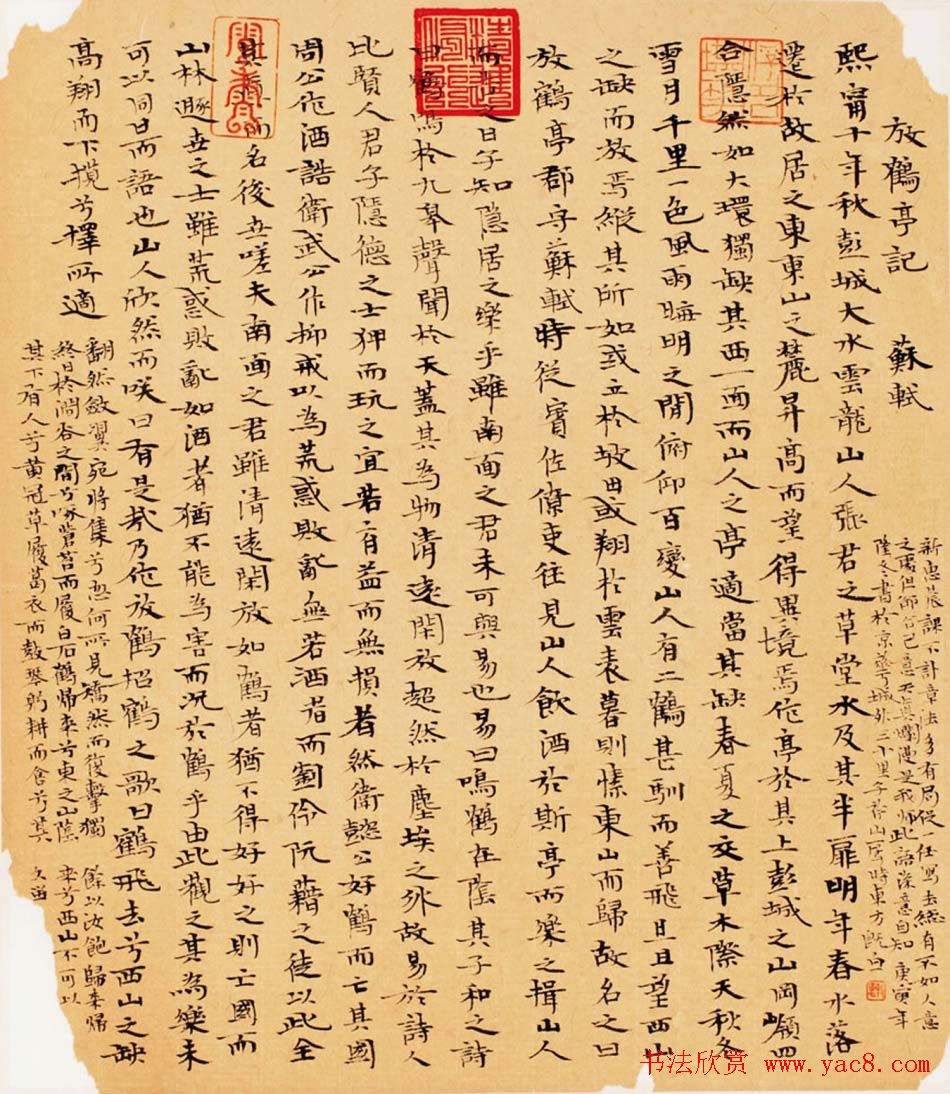 放鶴亭記 蘇軾
新忠晨課不計章法多有局促一任寫去縱有不如人意
之處但師己意天真爛漫是我師此語深意自知 庚寅年
隆冬書於京華城外三十里子莽山居時東方既白
熙甯十年秋彭城大水雲龍山人張君之草堂水及其半扉明年春水落
遷於故居之東東山之麓昇高而望得異境焉作亭於其上彭城之山岡嶺四
合隱然如大環獨缺其西一面而山人之亭適當其缺春夏之交草木際天秋冬
雪月千里一色風雨晦明之間俯仰百變山人有二鶴甚馴而善飛旦且望西山
之缺而放焉縱其所如或立於坡田或翔於雲表暮則愫東山而歸故名之曰
放鶴亭郡守蘇軾時從賓佐僚吏往見山人飲酒於斯亭而樂之揖山人
而告之曰子知隱居之樂乎雖南面之君未可與易也易曰鳴鶴在陰其子和之詩
曰鶴鳴於九皋聲聞於天蓋其為物清遠閑放超然於塵埃之外故易於詩人
比賢人君子隱德之士狎而玩之宜若有益而無損者然衛懿公好鶴而亡其國
周公作酒誥衛武公作抑戒以為荒惑敗亂無若酒者而劉伶阮藉之徒以此全
其真而名後世嗟夫南面之君雖清遠閑放如鶴者猶不得好好之則亡國而
山林遯世之士雖荒惑敗亂如酒者猶不能為害而況於鶴乎由此觀之其為樂未
可以同日而語也山人欣然而咲曰有是哉乃作放鶴招鶴之歌曰鶴飛去兮西山之缺
高翔而下攬兮擇所適
翻然斂翼宛將集兮忽何所見矯然而復擊獨
終日於澗谷之間兮啄蒼苔而履白石鶴歸來兮東之山陰
其下有人兮黃冠草履葛衣而鼓琴躬耕而食兮其
餘以汝飽歸來歸
來兮西山不可以
久留
书法欣赏 www.yac8.com